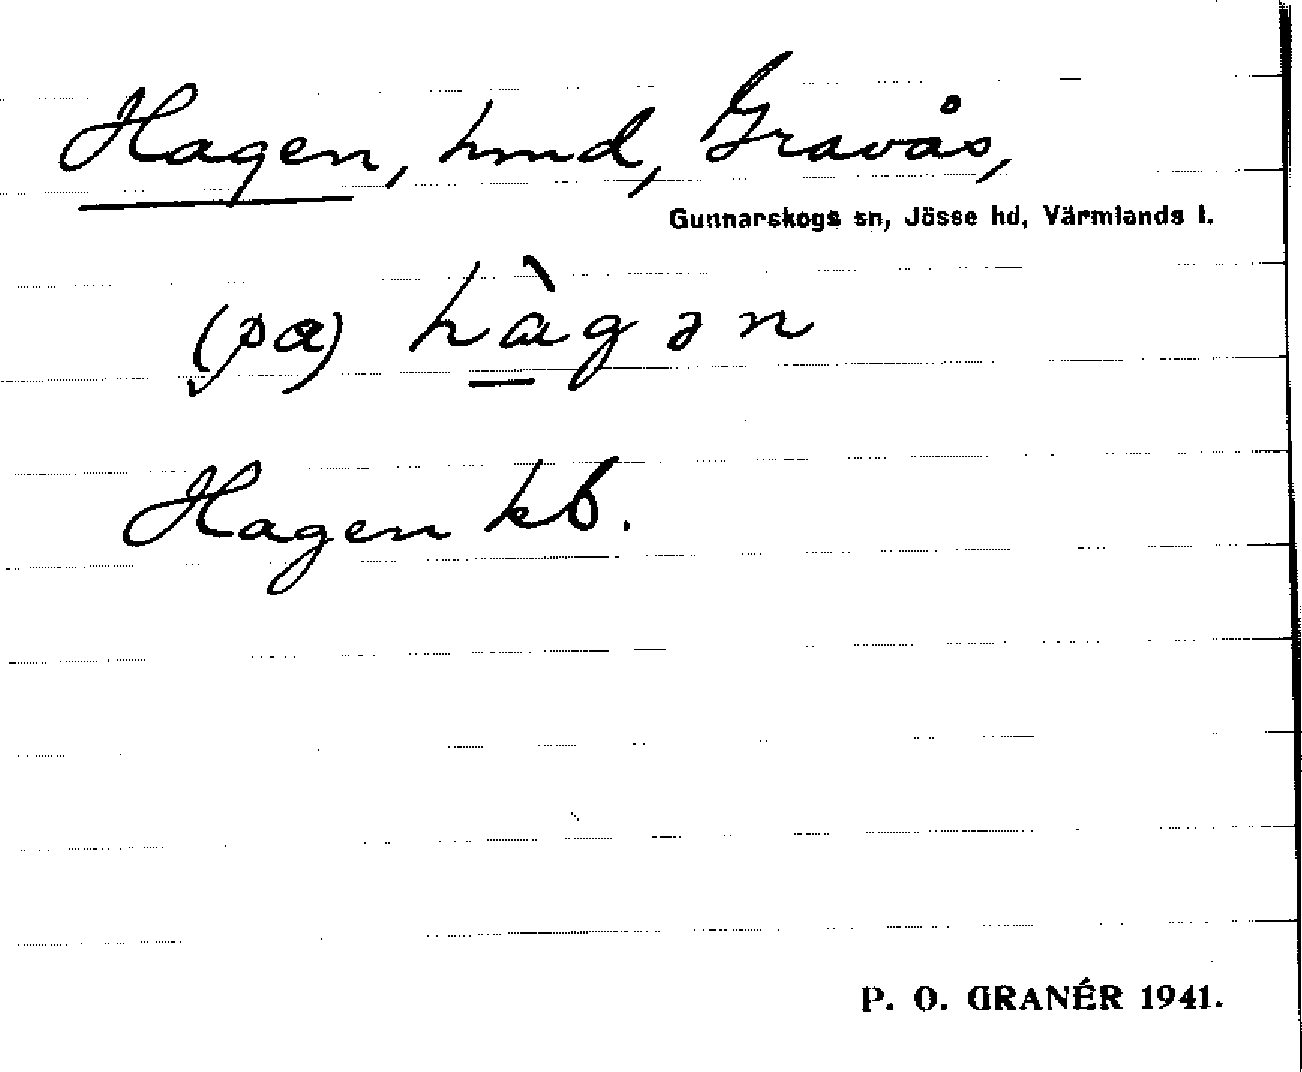 Hagen, hmd, Gravås,
Gunnarskogs sn, Jösse hd, Värmlands l.
(pa) hàgən
Hagen kb.
P. O. GRANÉR 1941.